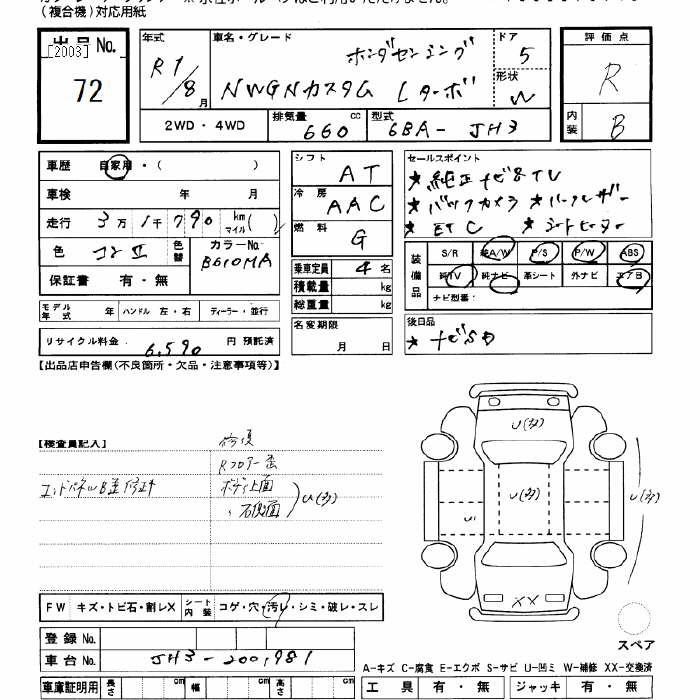 (複合機)対応用紙
出品No. [2003]
72
年式 R1/8月
車名・グレード ホンダセンシング
NWGNカスタム Lターボ
ドア 5
形状 W
評価点 R
内装 B
2WD・4WD
排気量 660 cc
型式 6BA-JH3
車歴 自家用・( )
車検 年 月
走行 3万1千790 km マイル( )
色
色替
カラーNo. B610MA
保証書 有・無
モデル年式 年 ハンドル 左・右 ディーラー・並行
リサイクル料金 6,590 円 預託済
シフト AT
冷房 AAC
燃料 G
乗車定員 4 名
積載量 kg
総重量 kg
名変期限 月 日
セールスポイント
★純正ナビ&TV
★バックカメラ ★パークレザー
★ETC ★シートヒーター
装備品
S/R 純A/W P/S P/W ABS
純TV 純ナビ 革シート 外ナビ エアB
ナビ型番:
後日品
★ナビSD
【出品店申告欄(不良箇所・欠品・注意事項等)】
【検査員記入】
修復
Rフロアー歪
エンドパネルB歪修正キ
ボディ上面
〃 右側面
U(多)
U(多)
U(多)
U(多)
U
XX
FW キズ・トビ石・割レX
シート内装 コゲ・穴・汚レ・シミ・破レ・スレ
登録No.
車台No. JH3-2001981
車庫証明用 長さ cm 幅 cm 高さ cm
スペア
A-キズ C-腐食 E-エクボ S-サビ U-凹ミ W-補修 XX-交換済
工具 有・無 ジャッキ 有・無